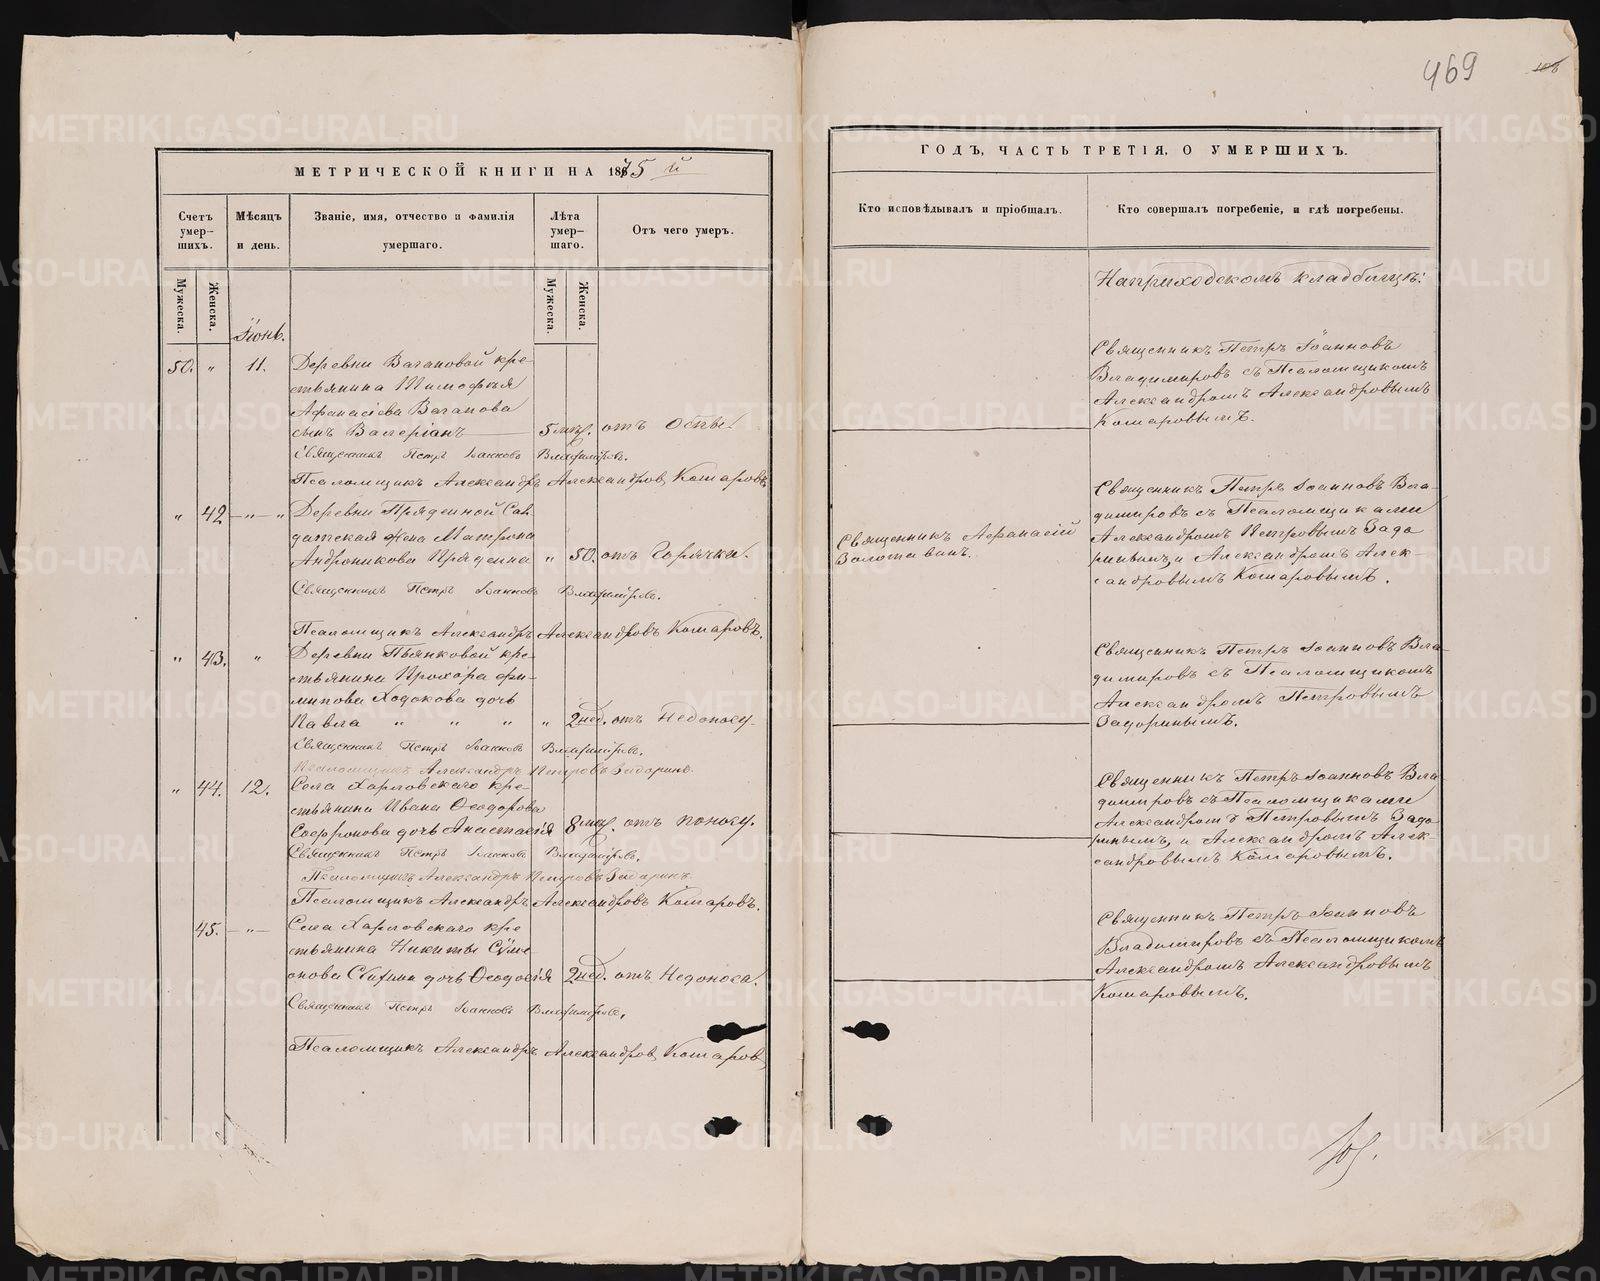 469
МЕТРИЧЕСКОЙ КНИГИ НА 1875 й
ГОДЪ, ЧАСТЬ ТРЕТІЯ, О УМЕРШИХЪ.
Счетъ умер-шихъ.
Мѣсяцъ и день.
Званіе, имя, отчество и фамилія умершаго.
Лѣта умер-шаго.
Отъ чего умеръ.
Кто исповѣдывалъ и пріобщалъ.
Кто совершалъ погребеніе, и гдѣ погребены.
Мужеска.
Женска.
Мужеска.
Женска.
Іюнь.
50. " 11. Деревни Вагановой кре-
стьянина Тимофея
Афанасіева Ваганова
сынъ Валеріанъ 5 мц. отъ Оспы.
Священникъ Петръ Іоанновъ Владиміровъ.
Псаломщикъ Александръ Александровъ Комаровъ
" 42 " " Деревни Пряденной Сол
датская жена Матрона
Андроникова Пряденна " 50. отъ Горячки.
Священникъ Петръ Іоанновъ Владиміровъ.
Псаломщикъ Александръ Александровъ Комаровъ.
" 43. " Деревни Пьянковой кре-
стьянина Прохора Фи-
липова Ходокова дочь
Павла " " " " 2 нед. отъ Недоносу.
Священникъ Петръ Іоанновъ Владиміровъ.
Псаломщикъ Александръ Петровъ Задоринъ.
" 44. 12. Села Харловскаго кре-
стьянина Ивана Ѳеодорова
Софронова дочь Анастасія 8 мц. отъ поносу.
Священникъ Петръ Іоанновъ Владиміровъ.
Псаломщикъ Александръ Петровъ Задоринъ.
Псаломщикъ Александръ Александровъ Комаровъ.
45. " Села Харловскаго кре
стьянина Никиты
онова дочь Ѳеодосія 2 нед. отъ Недоноса.
Священникъ Петръ Іоанновъ Владиміровъ.
Псаломщикъ Александръ Александровъ Комаровъ
На приходскомъ кладбищѣ.
Священникъ Петръ Іоанновъ
Владимировъ съ Псаломщикомъ
Александромъ Александровымъ
Комаровымъ.
Священникъ Афанасій
Золотавинъ.
Священникъ Петръ Іоанновъ Вла-
димировъ съ Псаломщиками
Александромъ Петровымъ Задо
ринымъ и Александромъ Алек-
сандровымъ Комаровымъ.
Священникъ Петръ Іоанновъ Вла-
димировъ съ Псаломщикомъ
Александромъ Петровымъ
Задоринымъ.
Священникъ Петръ Іоанновъ Вла
димировъ съ Псаломщиками
Александромъ Петровымъ Задо
ринымъ, и Александромъ Алек-
сандровымъ Комаровымъ.
Священникъ Петръ Іоанновъ
Владимировъ съ Псаломщикомъ
Александромъ Александровымъ
Комаровымъ.
METRIKI.GASO-URAL.RU